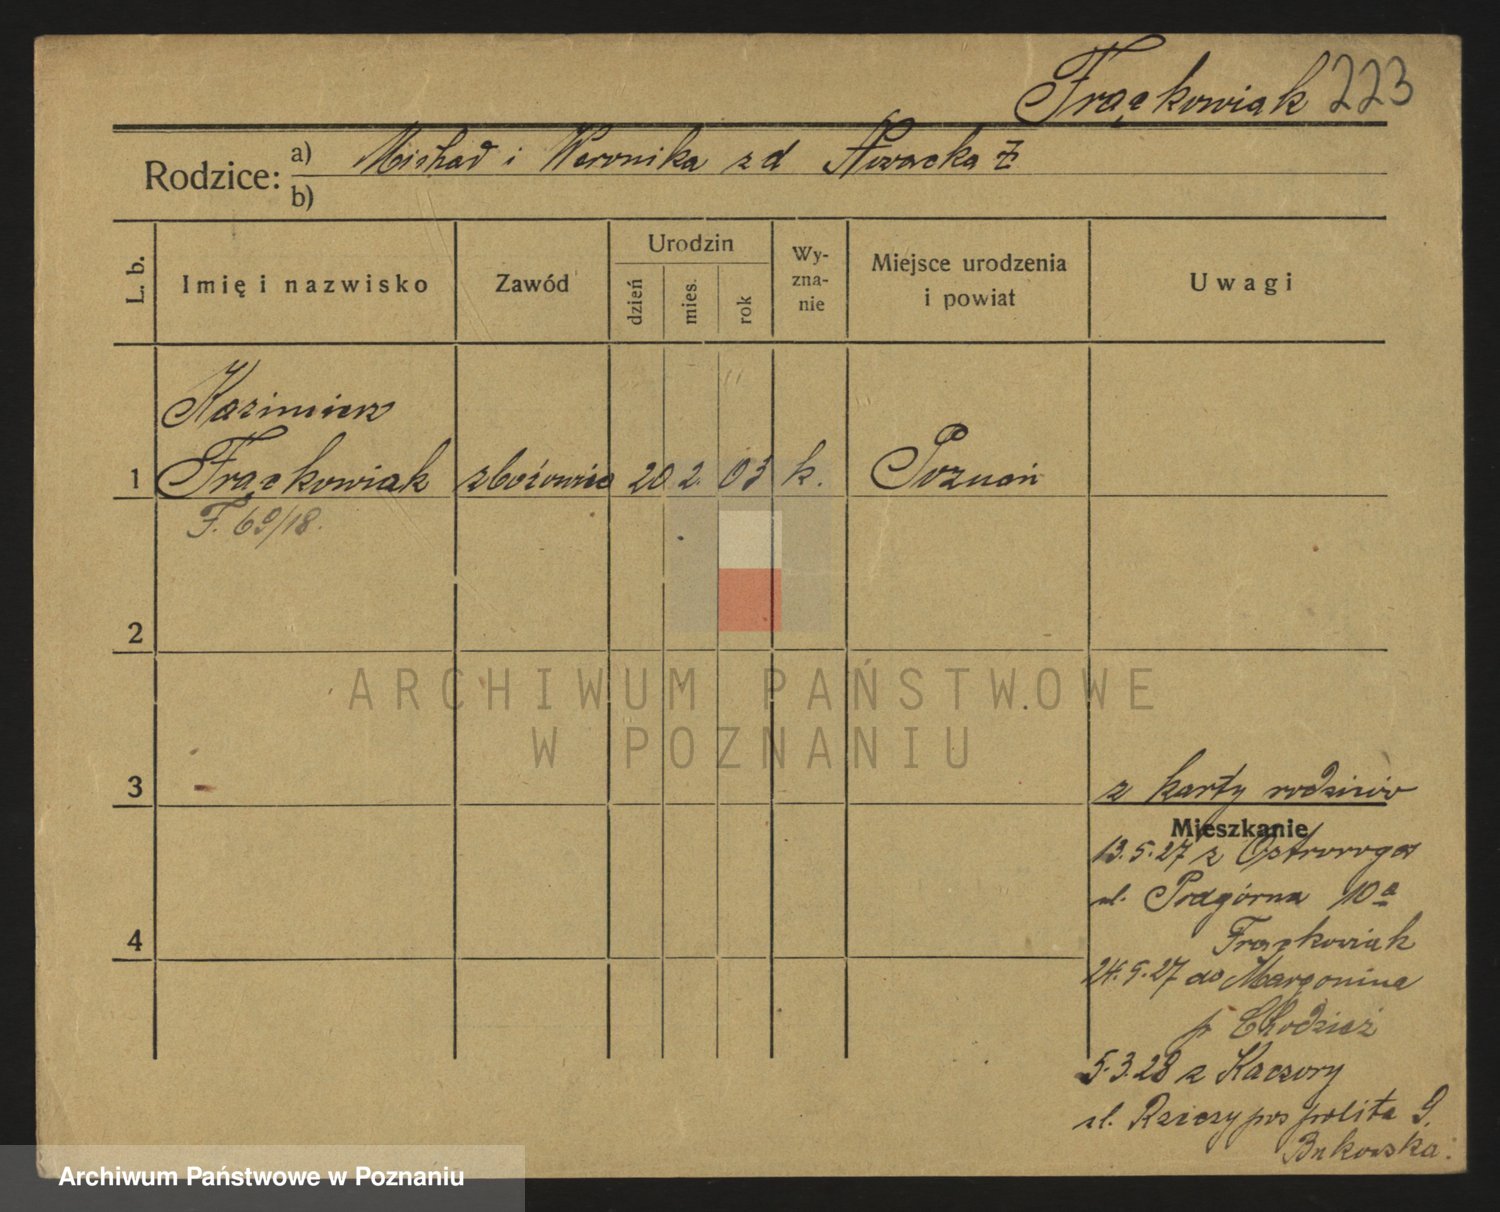 Frąckowiak 223
Rodzice: a) Michał i Weronika z d Nowacka
b)
L. b.
Imię i nazwisko
Zawód
Urodzin
dzień
mies.
rok
Wy-
zna-
nie
Miejsce urodzenia
i powiat
Uwagi
Kazimierz
1 Frąckowiak zbożowiec 20 2. 03 k. Poznań
F. 69/18.
2
ARCHIWUM PAŃSTWOWE
W POZNANIU
3
z karty rodziców
Mieszkanie
13.5.27 z Ostroroga
ul. Podgórna 10a
Frąckowiak
4
24.5.27 do Margonina
p Chodzież
5.3.28 z Kaczory
ul. Rzeczypospolita 9.
Bukowska.
Archiwum Państwowe w Poznaniu